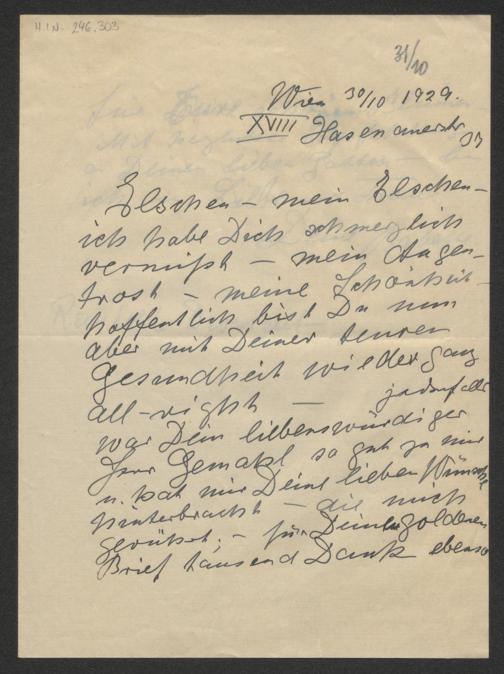 H.I.N. 246.303
31/10
Wien 30/10 1929.
XVIII Hasenauerstr
Elschen – mein Elschen –
ich habe Dich schmerzlich
vermißt – mein Augen-
trost – meine Schönheit –
hoffentlich bist Du nun
aber mit Deiner teuren
Gesundheit wieder ganz
all-right – jedenfalls
war Dein liebenswürdiger
Herr Gemahl so gut zu mir
u. hat mir Deine lieben Wünsche
hinterbracht – die mich
gerührt. – für Deinen goldenen
Brief tausend Dank ebenso